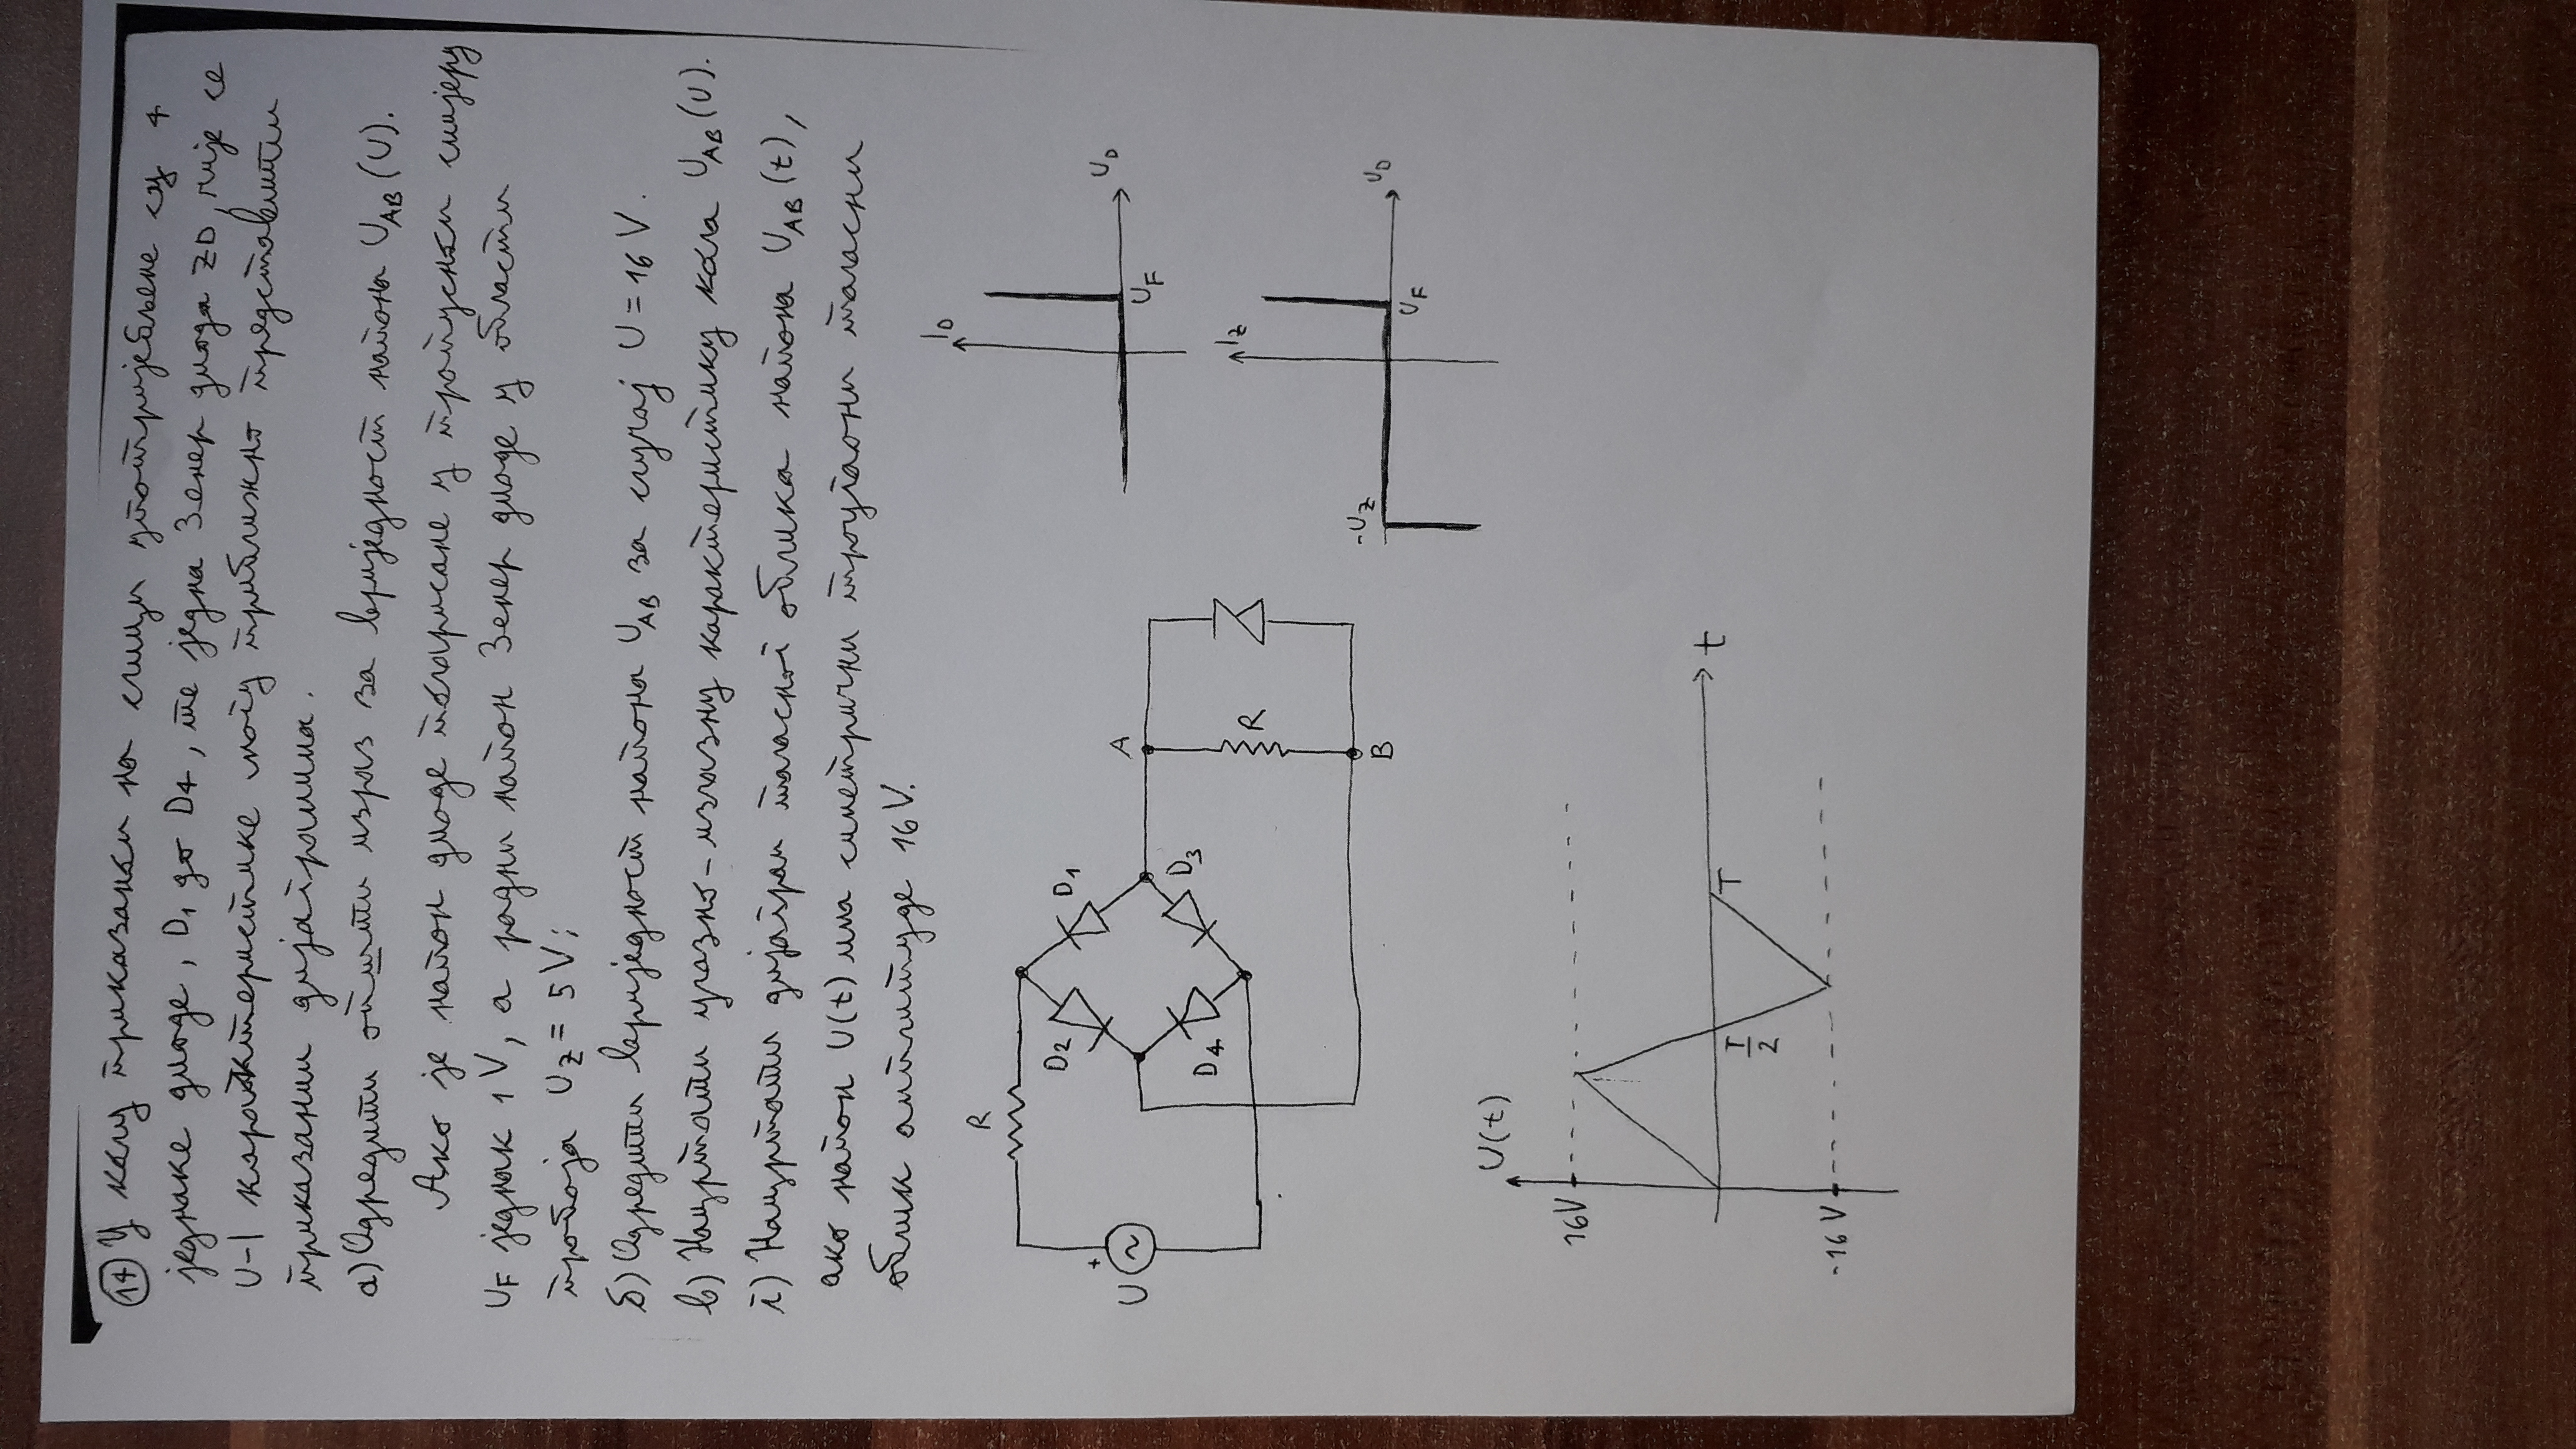 17) У колу приказаном на слици употријебљене су 4
једнаке диоде, D1 до D4, те једна Зенер диода ZD, чије се
U-I карактеристике могу приближно представити
приказаним дијаграмима.
а) Одредити општи израз за вриједност напона UAB(U).
Ако је напон диоде поларисане у пропусном смјеру
UF једнак 1 V, а радни напон Зенер диоде у области
пробоја UZ = 5 V;
б) Одредити вриједност напона UAB за случај U = 16 V.
в) Нацртати улазно-излазну карактеристику кола UAB(U).
г) Нацртати дијаграм таласног облика напона UAB(t),
ако напон U(t) има симетрични троугаони таласни
облик амплитуде 16 V.
R
D2
D1
+
U
~
D4
D3
A
R
B
ID
UD
UF
IZ
-UZ
UD
UF
U(t)
16V
T/2
T
t
-16 V